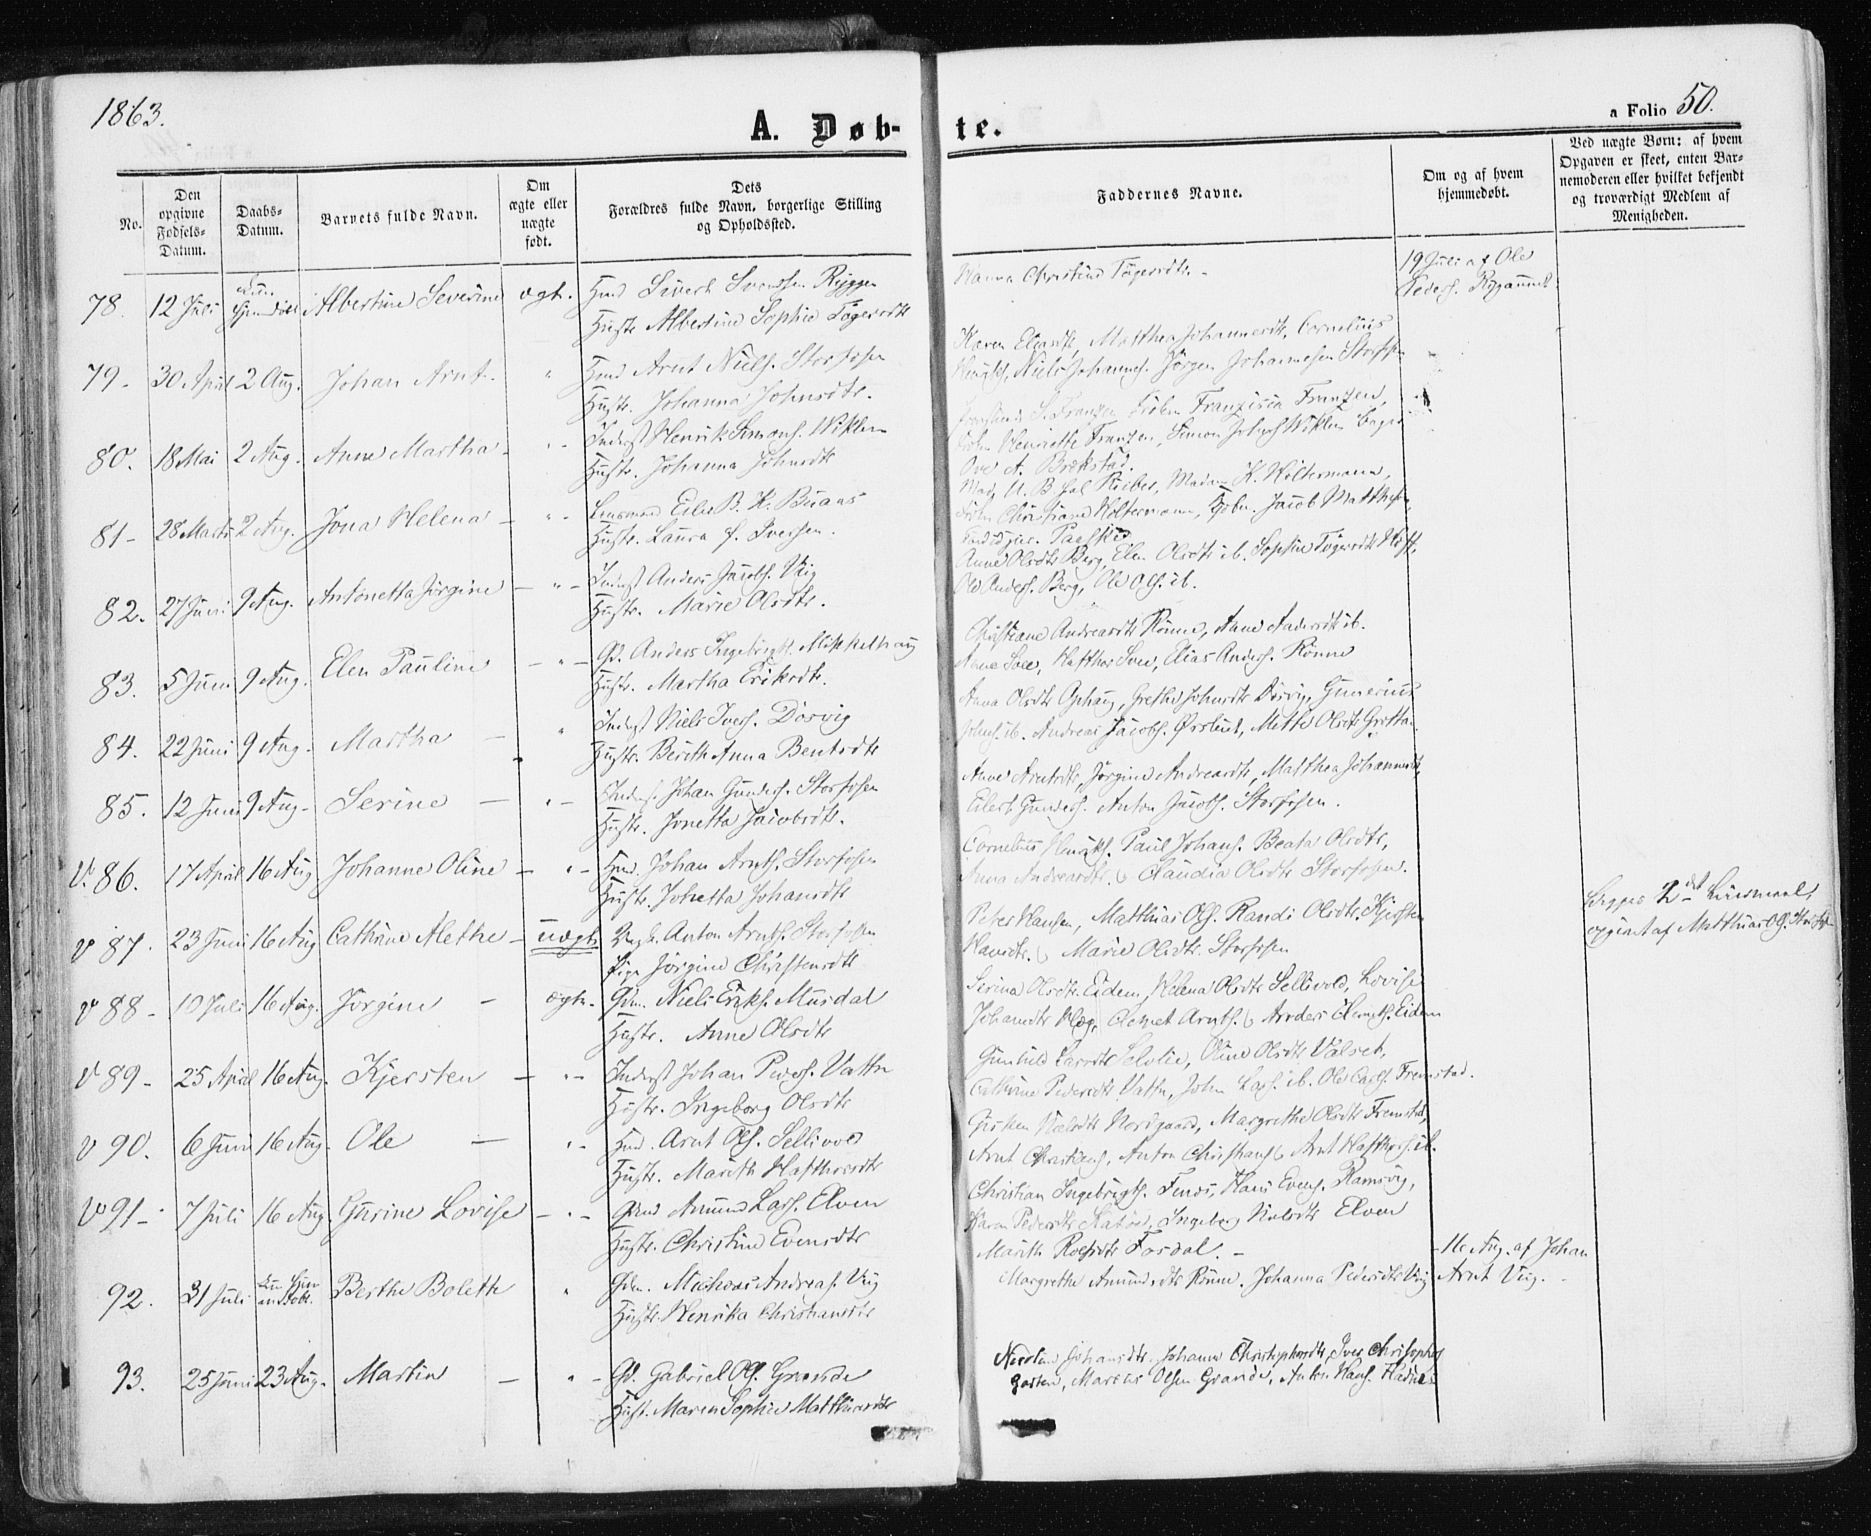 1863.
A. Døb-
te.
a Folio 50.
No.
Den
opgivne
Fødsels-
Datum.
Daabs-
Datum.
Barnets fulde Navn.
Om
ægte eller
uægte
født.
Dets
Forældres fulde Navn, borgerlige Stilling
og Opholdssted.
Faddernes Navne.
Om og af hvem
hjemmedøbt.
Ved uægte Børn: af hvem
Opgaven er skeet, enten Bar-
nemoderen eller hvilket bekjendt
og troværdigt Medlem af
Menigheden.
78. 12 Juli Kun Albertine Severine ægte. Hmd Sivert Svendsen Ryggen
Hustr. Albertine Sophie Tøgersdtr
Hanna Christine Tøgersdtr. -
19 Juli af Ole
Peders.
79. 30 April 2 Aug. Johan Arnt. " Hmd Arnt Niels. Storfosen
Hustr. Johanna Johnsdtr.
Karen Eliasdtr, Matthea Johannesdtr, Cornelius
Henriks, Niels Johannes. Jørgen Johannesen Storfosen
80. 18 Mai 2 Aug. Anne Martha - " - Inderst Henrik Simons. Wiklem
Hustr. Johanna Johnsdtr
S. Frantzen Frøken Franzisca Frantzen,
Frøken Henriette Frantzen, Simon Johns. Wiklem
Ove A. Brekstad.
81 - 28 Marts 2 Aug. Jona Helena - " - Lensmand Eiler B. K. Buaas
Hustr. Laura f. Iversen.
Mad. U. B. Rieber, Madam K. Holtermann,
Frøken Christiane Holtermann, Jacob Matthesen,
82. 27 Juni 9 Aug. Antonetta Jørgine - " - Inderst Anders Jacobs. Viig
Hustr. Marie Olsdtr.
Anne Olsdtr Berg, Elen Olsdtr ib. Sophie Tøgersdtr Hoff,
Ole Anders. Berg, Ole Ols. ib.
83. 5 Juni 9 Aug. Elen Pauline - " - Gd. Anders Ingebrigts. Mikkelhaug
Hustr. Martha Eriksdtr.
Christiane Andreasdtr Rønne, Anne Andersdtr ib.
Anne Svee, Hafthor Svee, Elias Anders. Rønne
84. 22 Juni 9 Aug. Martha - " Inderst Niels Ivers. Døsvig
Hustr. Berith Anna Bentsdtr
Anna Olsdtr Ophaug, Grethe Johnsdtr Døsvig, Gunerius
Johns. ib. Andreas Jacobs. Ørslund, Mette Olsdtr Grotta.
85. 12 Juni 9 Aug - Serine - " - Inderst Johan Gunders. Storfosen
Hustr. Jonetta Jacobsdtr.
Anne Arntsdtr, Jørgine Andreasdtr, Matthea Johannesdtr,
Eilert Gunders. Anton Jacobs. Storfosen.
V. 86. 17 April 16 Aug Johanne Oline - " - Hmd. Johan Arnts. Storfosen
Hustr. Johetta Johansdtr
Cornelius Henriks. Paul Johans. Beata Olsdtr,
Anna Andreasdtr. Claudia Olsdtr Storfosen.
V 87. 23 Juni 16 Aug Cathrine Alethe - uægte Ungk. Anton Arnts. Storfosen
Pige Jørgine Christensdtr
Peter Hansen, Matthias Ols. Randi Olsdtr. Kjersten
Hansdtr. Marie Olsdtr. Storfosen
Begges 2det Leiermaal,
opgivet af Matthias Ols.
V 88 - 10 Juli 16 Aug. Jørgine - ægte. Gdm. Niels Eriks. Musdal
Hustr. Anne Olsdtr
Serina Olsdtr Eidem, Helena Olsdtr Sellivold, Lovise
Johansdtr Hoeg, Clemet Arnts. Anders Clemets. Eidem
V 89 - 25 April 16 Aug. Kjersten - " - Inderst Johan Peders. Vatn
Hustr. Ingeborg Olsdtr
Gunhild Larsdtr Selvlie, Oline Olsdtr Valset,
Cathrine Pedersdtr Vatn, John Lars. ib. Ole Carls. Fremstad.
V 90. 6 Juni 16 Aug. Ole - " - Hmd. Arnt Ols. Sellivold
Hustr. Marith Hafthorsdtr
Girsken Nordgaard, Margrethe Olsdtr Fremstad,
Arnt Christians, Anton Christians. Arnt Hafthors. ib.
V 91 - 7 Juli 16 Aug. Gurine Lovise - " - Gmd Amund Lars. Elven
Hustr. Christine Evensdtr
Christian Ingebrigts. Hans Evens. Ramsvig,
Karen Pedersdtr Ingeborg Nielsdtr Elven
92. 31 Juli Kun Hjem Berthe Bolette " Gdm. Andreas. Viig
Hustr. Henrika Christiansdtr
Marith Roelsdtr Fosdal. -
Margrethe Amundsdtr Rønne. Johanna Pedersdtr Viig
16 Aug. af Johan
Arnt Viig. -
93. 25 Juni 23 Aug. Martin - " - Gd. Gabriel Ols. Grande
Hustr. Maren Sophie Matthiasdtr
Johansdtr. Johanna Christophersdtr, Iver Christophers
Garten, Marcus Olsen Grande, Anton Hans.